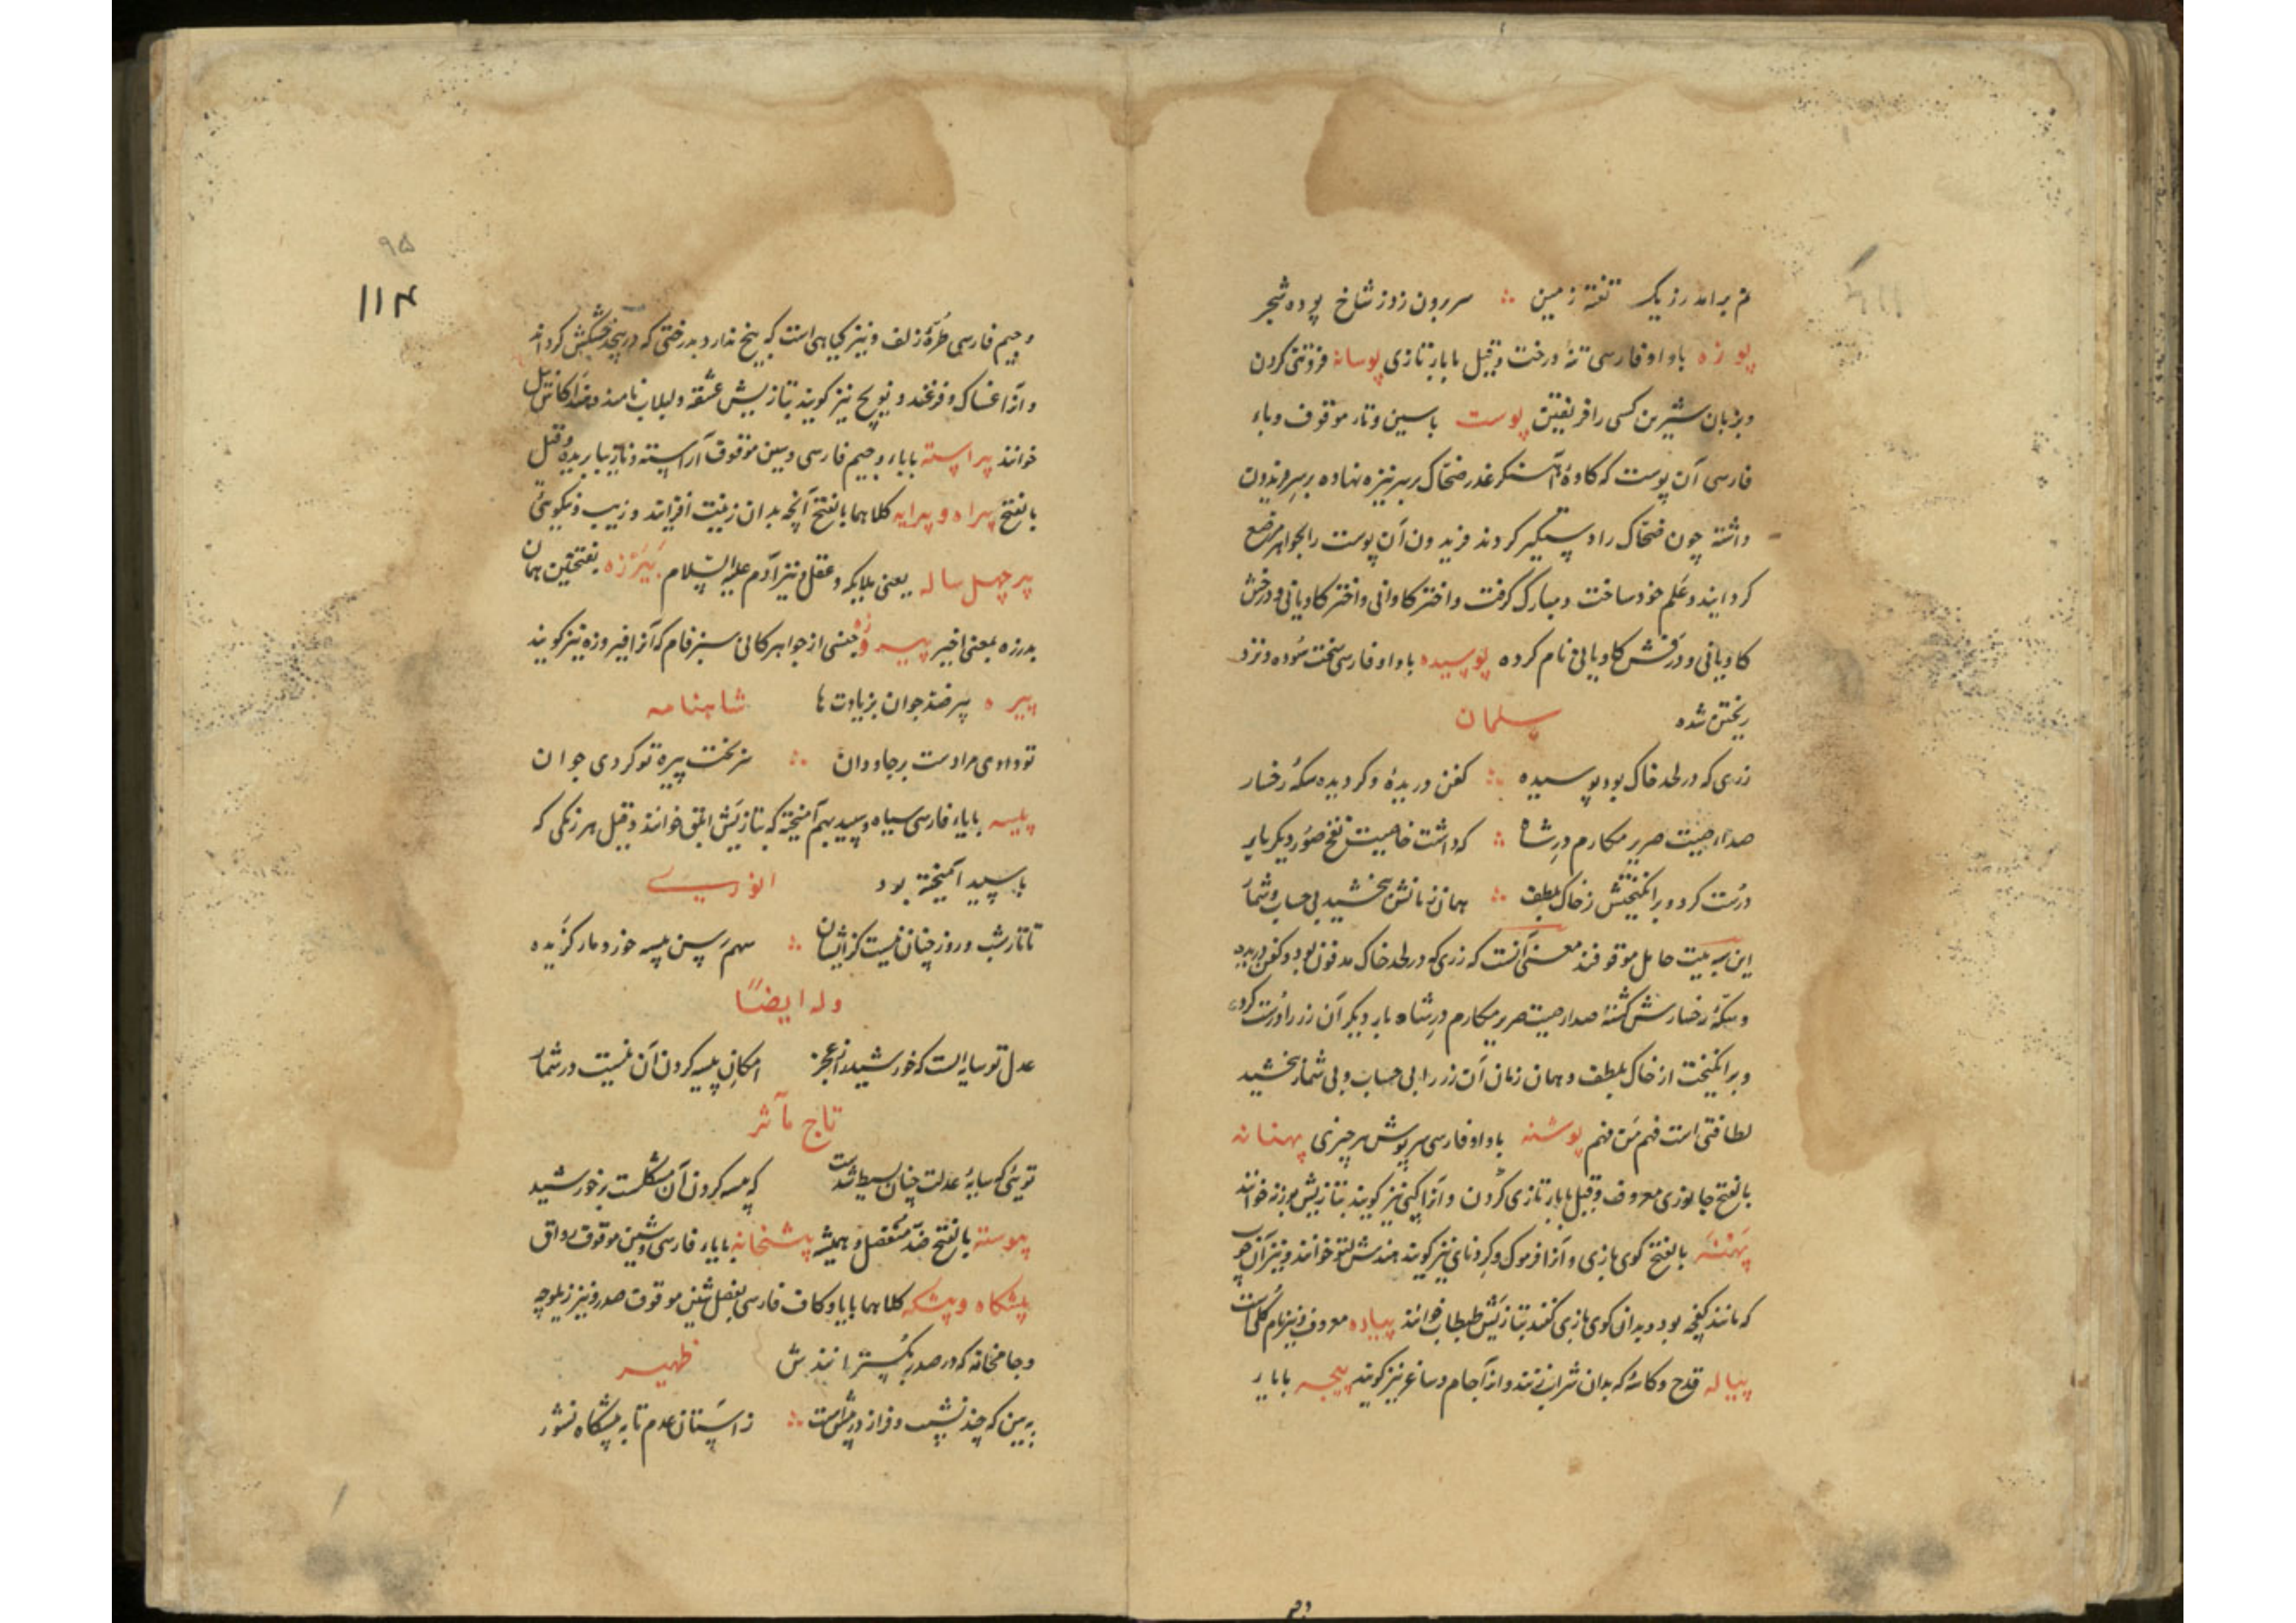 نم برامد رزیک تفته زمین ∴ سر برون زدز شاخ پوده شجر
پوزه باواو فارسی تنهٔ درخت و قیل بابار تازی پوسانه فروتنی کردن
و بزبان شیرین کسی را فریفتن پوست باسین و تار موقوف و باء
فارسی آن پوست که کاوهٔ آهنگر غدر ضحاک بر سر نیزه نهاده بر سر فریدون
داشته چون ضحاک را دستگیر کردند فریدون آن پوست را بجواهر مرصع
کردانید و علم خود ساخت و مبارک گرفت و اختر کاوانی و اختر کاویانی و درفش
کاویانی و درفش کاویانی نام کرده پوسیده باواو فارسی سخت سوده و نزد
ریختن شده سلمان
زری که در لحد خاک بود پوسیده ∴ کفن دریدهٔ و کردیده سکهٔ رخسار
صدار صیت صریر مکارم در شاه ∴ که داشت خاصیت نفخ صور دیکر بار
درست کرد و برانکیختش ز خاک بلطف ∴ همان زمانش ببخشید بی حساب و شمار
این سه بیت حامل موقوفند معنی آنست که زری که در لحد خاک مدفون بود و کفن دریده
و سکهٔ رخسارش کشته صدار صیت صریر مکارم در شاه بار دیکر آن زر را درست کرد
و برانکیخت از خاک بلطف و همان زمان آن زر را بی حساب و بی شمار بخشید
لطافتی است فهم من فهم پوشنه باواو فارسی سرپوش هر چیزی پهنانه
بالفتح جانوری معروف و قیل بابار تازی کردن و آنرا کپی نیز کویند بتازیش بوزنه خوانند
پهنه بالفتح کوی بازی و آنرا فرموک و کردنای نیز کویند هندش لتو خوانند و نیز آن چوب
که مانند کفچه بود و بدان کوی بازی کنند بتازیش طبطاب خوانند پیاده معروف و نیز نام کلی است
پیاله قدح و کاسهٔ که بدان شراب زنند و آنرا جام و ساغر نیز کویند پیچه بابار
۹۵
۱۱۴
و جیم فارسی طرهٔ زلف و نیز کیاهی است که بیخ ندارد بدرختی که در پیچد خشکش کرداند
و آنرا غساک و فرغند و نوپچ نیز کویند بتازیش عشقه و لبلاب نامند
خوانند پیراسته بابار و جیم فارسی و سین موقوف آراسته و نازیبا بریده و قیل
بالفتح پیراه و پیرایه کلاهما بالفتح آنچه بدان زینت افزایند و زیب و نیکویی
پیر چهل ساله یعنی بلایکه و عقل و نیز آدم علیه السلام بیرزه بفتحتین همان
بدرزه بمعنی اخیر پیروزه جنسی از جواهر کانی سبز فام که آنرا فیروزه نیز کویند
پیره پیر ضد جوان بزیادت ها شاهنامه
تو دادی مرا دست بر جاودان ∴ سر بخت پیره تو کردی جوان
پیسه بایاء فارسی سیاه و سپید بهم آمیخته که بتازیش ابلق خوانند و قیل هر رنکی که
با سپید آمیخته بود انوری
تا تار شب و روز چنان نیست کز ایشان ∴ سهم رسن پیسه خورد مار کزیده
وله ایضًا
عدل تو سایه ایست که خورشید را ز عجز امکان پیسه کردن آن نیست در شمار
تاج مآثر
تویی که سایهٔ عدلت چنان بسیط شدست که پیسه کردن آن مشکلست بر خورشید
پیوسته بالفتح ضد منفصل و همیشه پیشخانه بایار فارسی و شین موقوف رواق
پیشکاه و پیشکه کلاهما بایا و کاف فارسی بفصل شین موقوف صدر و نیز زیلوچه
و جامخانه که در صدر بکسترانندش ظهیر
ببین که چند نشیب و فراز در پیش است ∴ ز آستان عدم تا به پیشکاه نشور